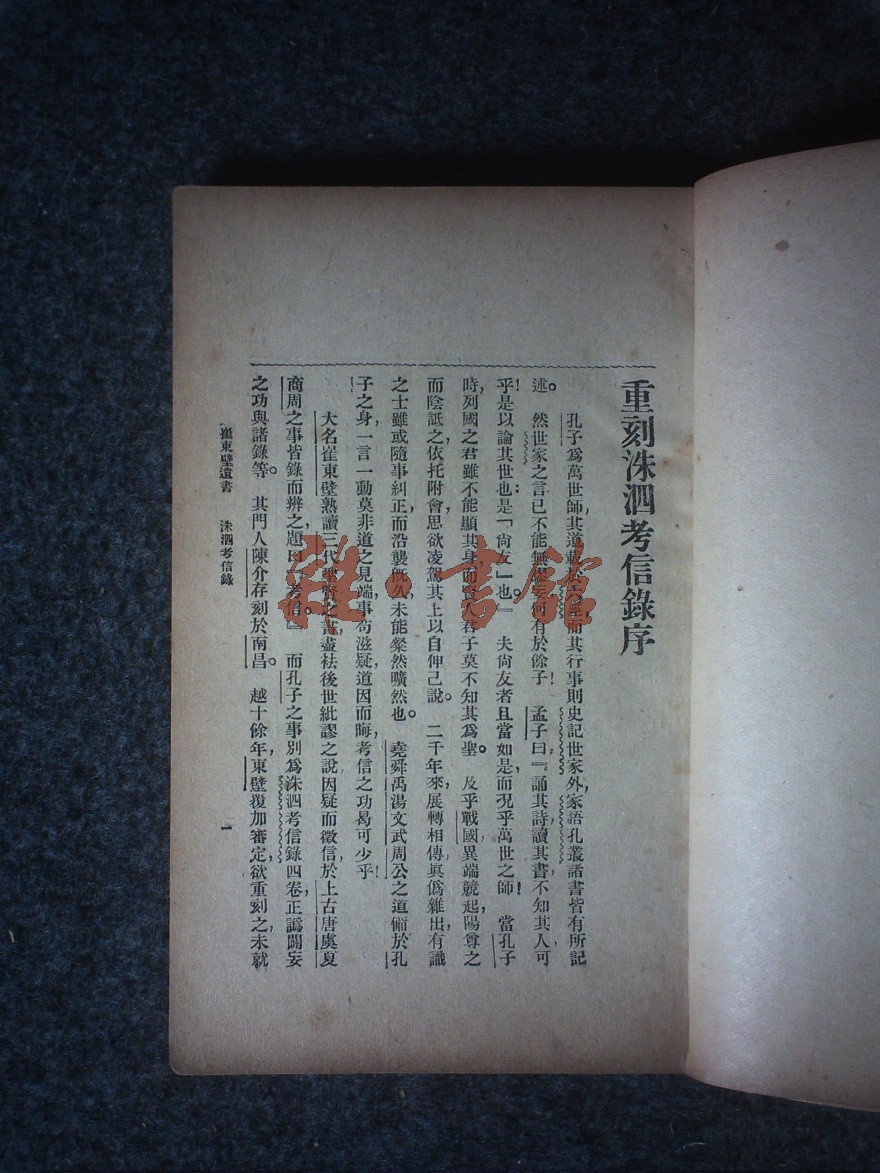 重刻洙泗考信錄序
孔子爲萬世師,其道載於六經,而其行事則史記世家外,家語孔叢諸書皆有所記
述。 然世家之言已不能無謬妄,何有於餘子! 孟子曰『誦其詩,讀其書,不知其人,可
乎!是以論其世也:是「尙友」也。』 夫尙友者且當如是,而況乎萬世之師! 當孔子
時,列國之君雖不能顯其身,而賢人君子莫不知其爲聖。 及乎戰國,異端競起,陽尊之
而陰詆之,依托附會,思欲凌駕其上以自伸己說。 二千年來,展轉相傳,眞僞雜出,有識
之士雖或隨事糾正,而沿襲旣久,未能粲然曠然也。 堯舜禹湯文武周公之道備於孔
子之身,一言一動莫非道之見端,事苟滋疑,道因而晦,考信之功曷可少乎!
大名崔東壁熟讀三代聖賢之書,盡袪後世紕謬之說,因疑而徵信,於上古唐虞夏
商周之事皆錄而辨之,題曰『考信』。 而孔子之事別爲洙泗考信錄四卷,正譌闢妄
之功與諸錄等。 其門人陳介存刻於南昌。 越十餘年,東壁覆加審定,欲重刻之,未就
崔東壁遺書 洙泗考信錄 一
雜·書館